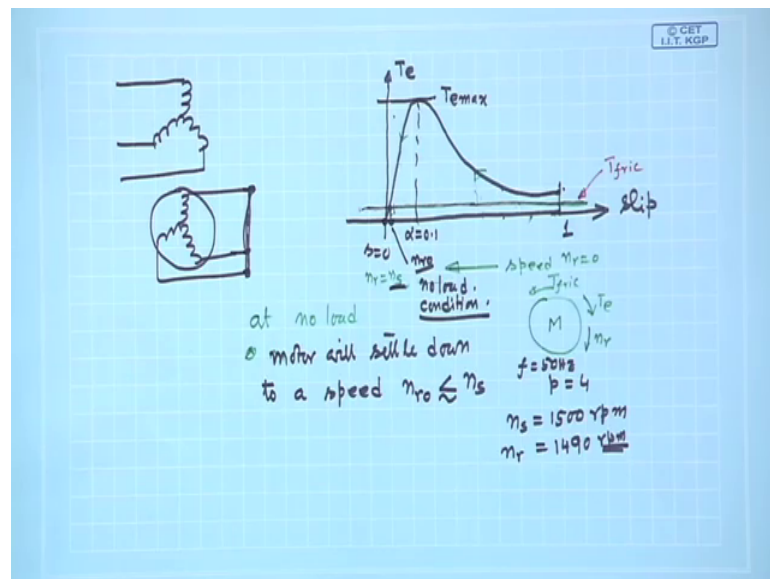 © CET
I.I.T. KGP
Te
Temax
Tfric
slip
s=0
α=0.1
1
nr0
nr=ns
speed nr=0
no load.
condition.
Tfric
Te
M
nr
at no load
motor will settle down
to a speed nr0 ≲ ns
f=50Hz
p=4
ns = 1500 rpm
nr = 1490 rpm